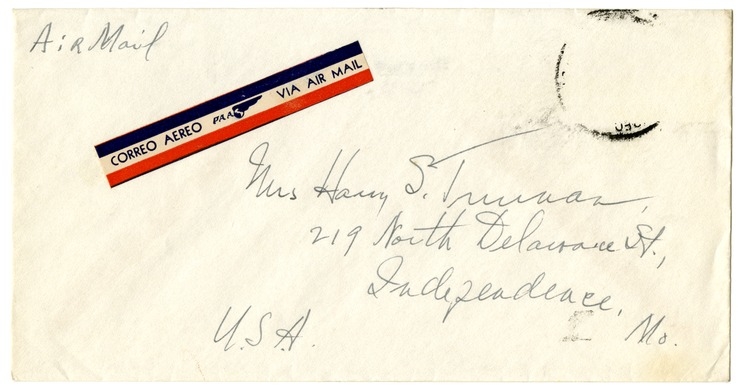 Air Mail
CORREO AEREO PAA VIA AIR MAIL
Mrs Harry S. Truman,
219 North Delaware St.,
Independence,
Mo.
U.S.A.